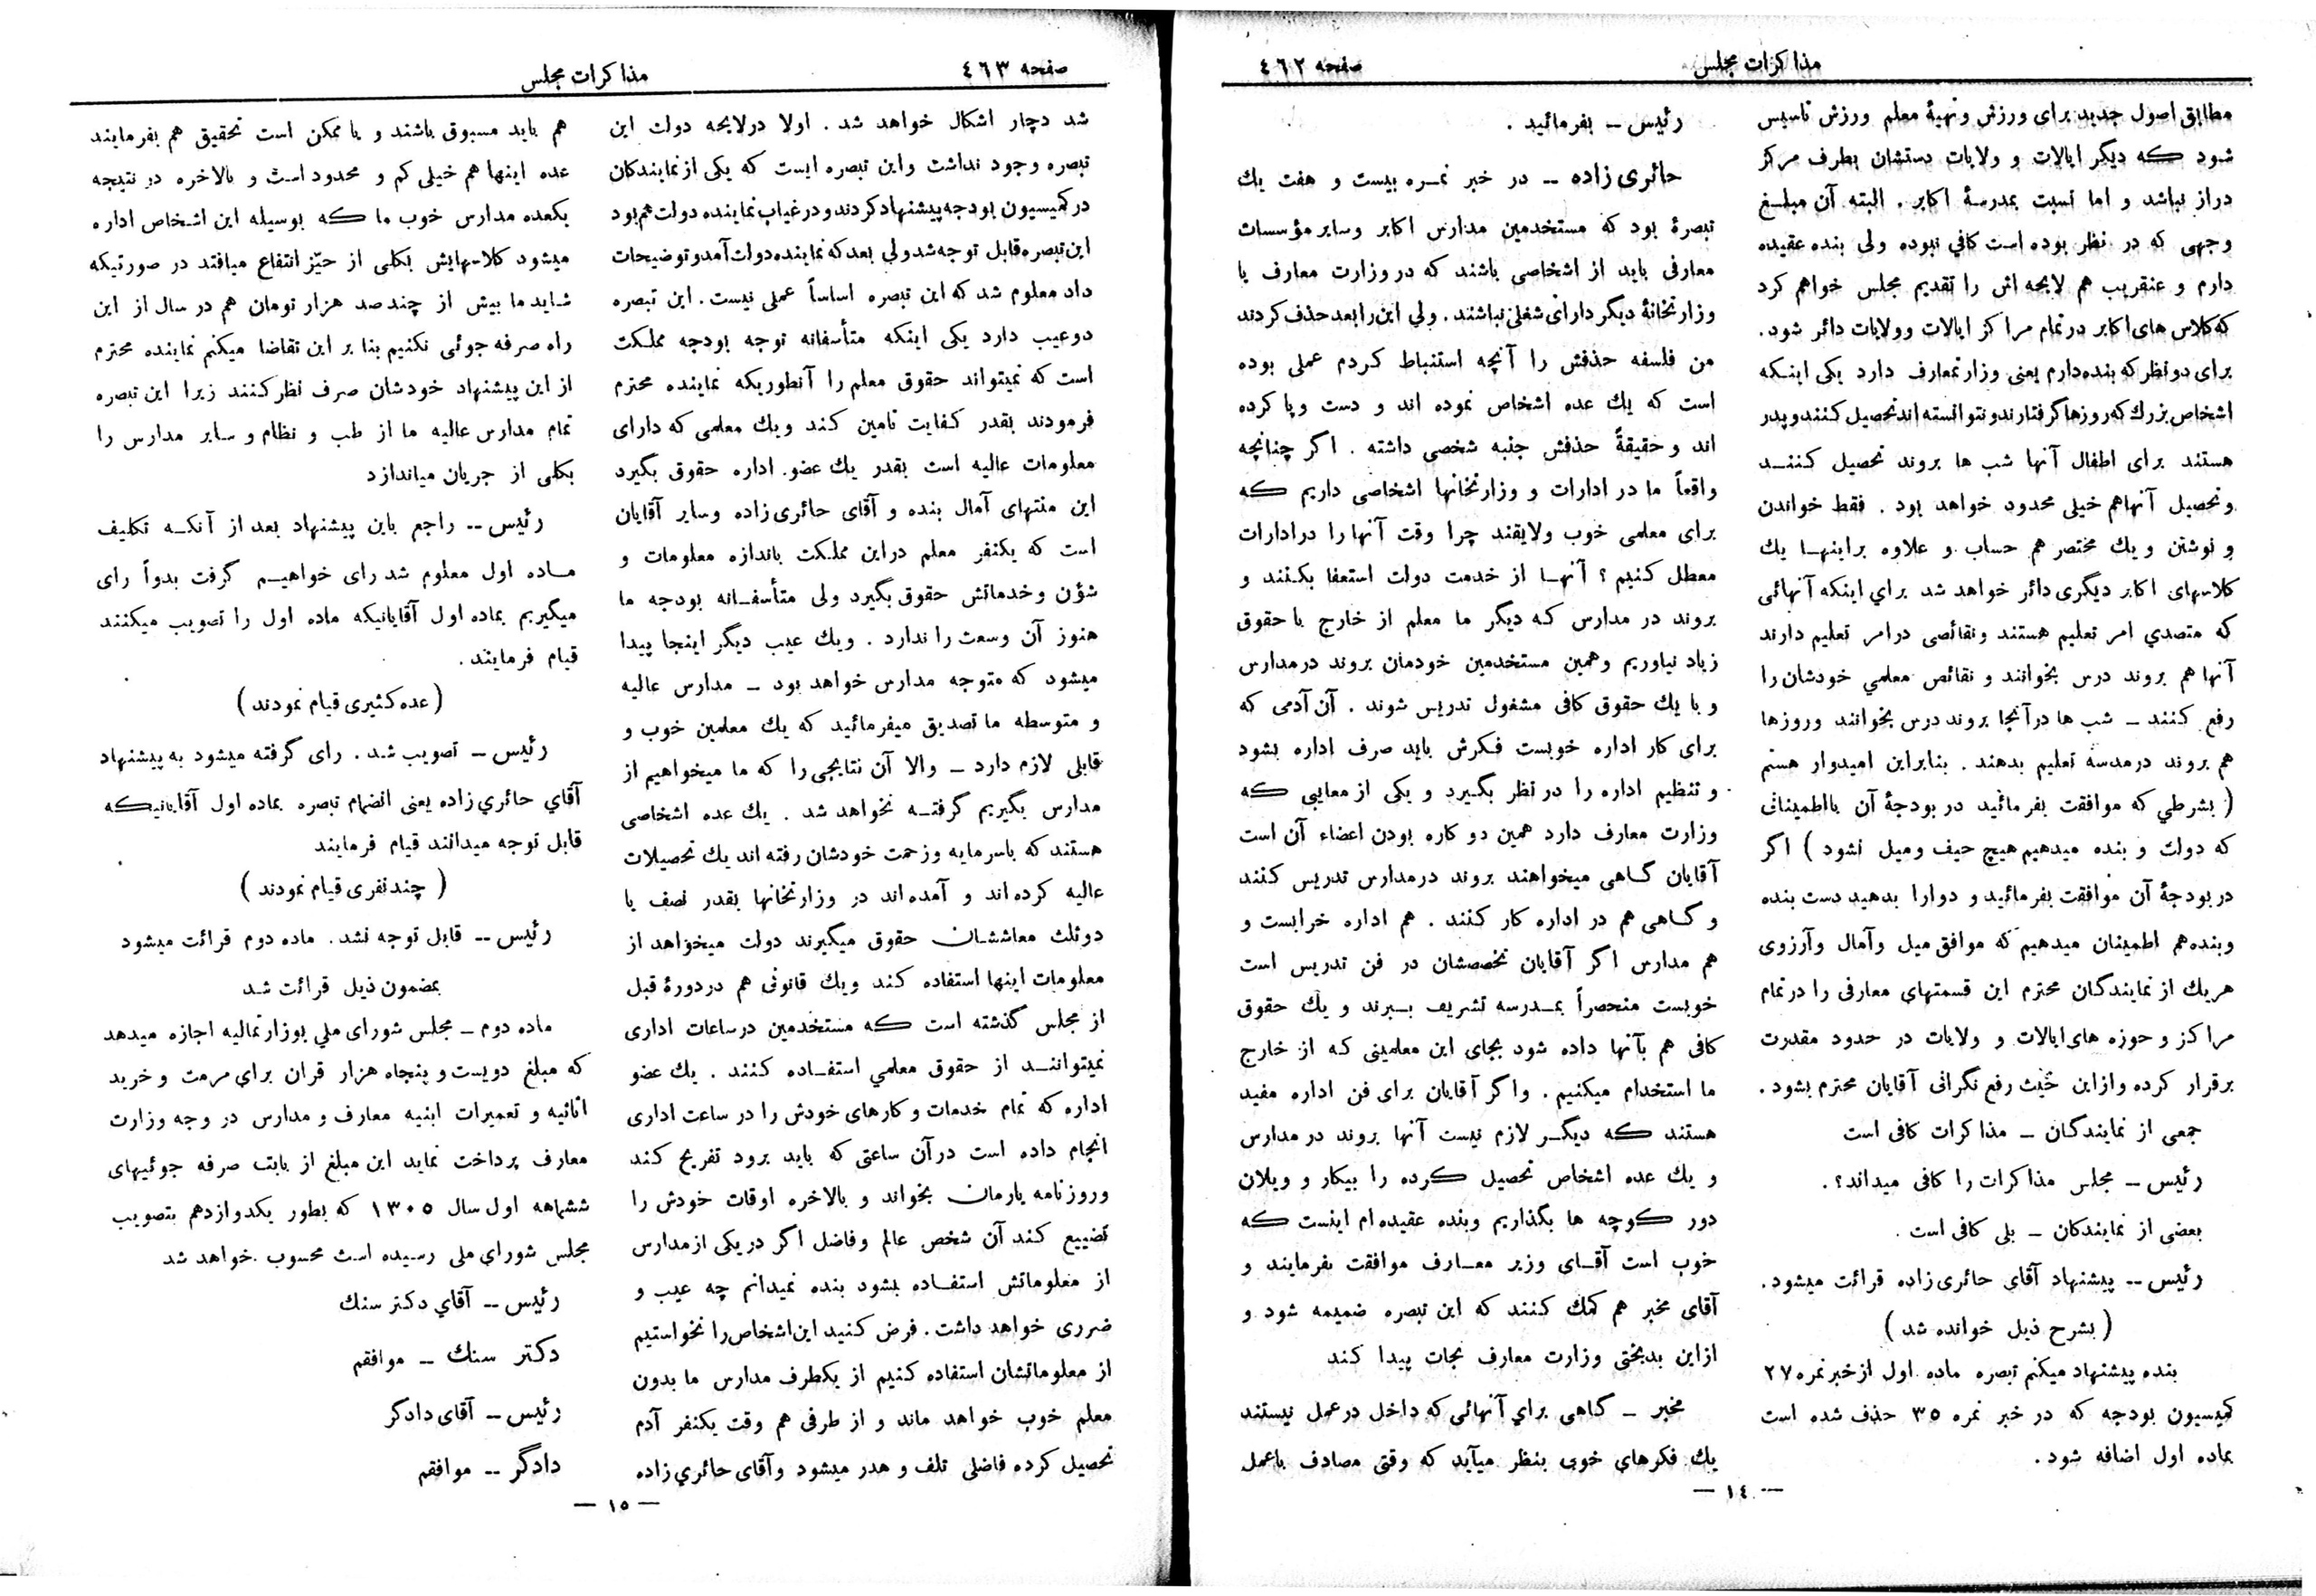 مذاکرات مجلس
صفحه ٤٦٢
مطابق اصول جدید برای ورزش وتهیهٔ معلم ورزش تاسیس
شود که دیگر ایالات و ولایات دستشان بطرف مرکز
دراز نباشد و اما نسبت بمدرسهٔ اکابر . البته آن مبلغ
وجهی که در نظر بوده است کافي نبوده ولی بنده عقیده
دارم و عنقریب هم لایحه اش را تقدیم مجلس خواهم کرد
که کلاس های اکابر در تمام مراکز ایالات وولایات دائر شود .
برای دو نظر که بنده دارم یعنی وزارتمعارف دارد یکی اینکه
اشخاص بزرك که روزها گرفتارند و نتوانسته اند تحصیل کنند و پدر
هستند برای اطفال آنها شب ها بروند تحصیل کنند
وتحصیل آنهاهم خیلی محدود خواهد بود . فقط خواندن
و نوشتن ویك مختصر هم حساب و علاوه براینها یك
کلاسهای اکابر دیگری دائر خواهد شد براي اینکه آنهائی
که متصدي امر تعلیم هستند ونقائصی درامر تعلیم دارند
آنها هم بروند درس بخوانند و نقائص معلمي خودشان را
رفع کنند – شب ها درآنجا بروند درس بخوانند وروزها
هم بروند درمدسه تعلیم بدهند . بنابراین امیدوار هستم
( بشرطي که موافقت بفرمائید در بودجهٔ آن بااطمینانی
که دولت و بنده میدهیم هیچ حیف ومیل نشود ) اگر
در بودجهٔ آن موافقت بفرمائید و دوارا بدهید دست بنده
وبنده هم اطمینان میدهیم که موافق میل وآمال وآرزوی
هریك از نمایندگان محترم این قسمتهای معارفی را درتمام
مراکز و حوزه های ایالات و ولایات در حدود مقدرت
برقرار کرده وازاین حیث رفع نگرانی آقایان محترم بشود .
جمعی از نمایندگان – مذاکرات کافی است
رئیس – مجلس مذاکرات را کافی میداند؟ .
بعضی از نمایندکان – بلی کافی است .
رئیس – پیشنهاد آقای حائری زاده قرائت میشود .
( بشرح ذیل خوانده شد )
بنده پیشنهاد میکنم تبصره ماده اول ازخبر نمره ۲۷
کمیسیون بودجه که در خبر نمره ۳٥ حذف شده است
بماده اول اضافه شود .
رئیس – بفرمائید .
حائری زاده – در خبر نمره بیست و هفت یك
تبصرهٔ بود که مستخدمین مدارس اکابر وسایر مؤسسات
معارفی باید از اشخاصی باشند که در وزارت معارف یا
وزارتخانهٔ دیگر دارای شغلی نباشند . ولی این را بعد حذف کردند
من فلسفه حذفش را آنچه استنباط کردم عملی بوده
است که یك عده اشخاص نموده اند و دست وپا کرده
اند و حقیقةً حذفش جنبه شخصی داشته . اگر چنانچه
واقعاً ما در ادارات و وزارتخانها اشخاصی داریم که
برای معلمی خوب ولایقند چرا وقت آنها را درادارات
معطل کنیم ؟ آنها از خدمت دولت استعفا بکنند و
بروند در مدارس که دیگر ما معلم از خارج با حقوق
زیاد نیاوریم وهمین مستخدمین خودمان بروند درمدارس
و با یك حقوق کافی مشغول تدریس شوند . آن آدمی که
برای کار اداره خوبست فکرش باید صرف اداره بشود
و تنظیم اداره را در نظر بگیرد و یکی از معایبی که
وزارت معارف دارد همین دو کاره بودن اعضاء آن است
آقایان گاهی میخواهند بروند درمدارس تدریس کنند
و گاهی هم در اداره کار کنند . هم اداره خرابست و
هم مدارس اگر آقایان تخصصشان در فن تدریس است
خوبست منحصراً بمدرسه تشریف ببرند و یك حقوق
کافی هم بآنها داده شود بجای این معلمینی که از خارج
ما استخدام میکنیم . واگر آقایان برای فن اداره مفید
هستند که دیگر لازم نیست آنها بروند در مدارس
و یك عده اشخاص تحصیل کرده را بیکار و ویلان
دور کوچه ها بگذاریم وبنده عقیده ام اینست که
خوب است آقای وزیر معارف موافقت بفرمایند و
آقای مخبر هم کمك کنند که این تبصره ضمیمه شود و
ازاین بدبختی وزارت معارف نجات پیدا کند
مخبر – گاهی براي آنهائی که داخل درعمل نیستند
یك فکرهاي خوبی بنظر میآید که وقتی مصادف باعمل
– ١٤ –
صفحه ٤٦٣
مذاکرات مجلس
شد دچار اشکال خواهد شد . اولا درلایحه دولت این
تبصره وجود نداشت واین تبصره ایست که یکی از نمایندکان
در کمیسیون بودجه پیشنهاد کردند و در غیاب نماینده دولت هم بود
این تبصره قابل توجه شد ولي بعد که نماینده دولت آمد و توضیحات
داد معلوم شد که این تبصره اساساً عملی نیست . این تبصره
دوعیب دارد یکی اینکه متأسفانه توجه بودجه مملکت
است که نمیتواند حقوق معلم را آنطوریکه نماینده محترم
فرمودند بقدر کفایت تامین کند ویك معلمی که دارای
معلومات عالیه است بقدر یك عضو اداره حقوق بگیرد
این منتهای آمال بنده و آقای حائری زاده وسایر آقایان
است که یکنفر معلم دراین مملکت باندازه معلومات و
شؤن وخدماتش حقوق بگیرد ولی متأسفانه بودجه ما
هنوز آن وسعت را ندارد . ویك عیب دیگر اینجا پیدا
میشود که متوجه مدارس خواهد بود – مدارس عالیه
و متوسطه ما تصدیق میفرمائید که یك معلمین خوب و
قابلی لازم دارد – والا آن نتایجی را که ما میخواهیم از
مدارس بگیریم گرفته نخواهد شد . یك عده اشخاصی
هستند که باسرمایه وزحمت خودشان رفته اند یك تحصیلات
عالیه کرده اند و آمده اند در وزارتخانها بقدر نصف یا
دوثلث معاششان حقوق میگیرند دولت میخواهد از
معلومات اینها استفاده کند ویك قانونی هم در دورهٔ قبل
از مجلس گذشته است که مستخدمین درساعات اداری
نمیتوانند از حقوق معلمي استفاده کنند . یك عضو
اداره که تمام خدمات وکارهای خودش را در ساعت اداری
انجام داده است درآن ساعتی که باید برود تفریح کند
وروزنامه یارمان بخواند و بالاخره اوقات خودش را
تضییع کند آن شخص عالم وفاضل اگر در یکی ازمدارس
از معلوماتش استفاده بشود بنده نمیدانم چه عیب و
ضرری خواهد داشت . فرض کنید این اشخاص را نخواستیم
از معلوماتشان استفاده کنیم از یکطرف مدارس ما بدون
معلم خوب خواهد ماند و از طرفی هم وقت یکنفر آدم
تحصیل کرده فاضلی تلف و هدر میشود وآقای حائري زاده
هم باید مسبوق باشند و یا ممکن است تحقیق هم بفرمایند
عده اینها هم خیلی کم و محدود است و بالاخره در نتیجه
یکعده مدارس خوب ما که بوسیله این اشخاص اداره
میشود کلاسهایش بکلی از حیّز انتفاع میافتد در صورتیکه
شاید ما بیش از چند صد هزار تومان هم در سال از این
راه صرفه جوئی نکنیم بنا بر این تقاضا میکنم نماینده محترم
از این پیشنهاد خودشان صرف نظر کنند زیرا این تبصره
تمام مدارس عالیه ما از طب و نظام و سایر مدارس را
بکلی از جریان میاندازد
رئیس – راجع باین پیشنهاد بعد از آنکه تکلیف
ماده اول معلوم شد رای خواهیم گرفت بدواً رای
میگیریم بماده اول آقایانیکه ماده اول را تصویب میکنند
قیام فرمایند .
(عده کثیری قیام نمودند )
رئیس – تصویب شد . رای گرفته میشود به پیشنهاد
آقاي حائري زاده یعنی انضمام تبصره بماده اول آقایانیکه
قابل توجه میدانند قیام فرمایند
( چند نفری قیام نمودند )
رئیس – قابل توجه نشد . ماده دوم قرائت میشود
بمضمون ذیل قرائت شد
ماده دوم – مجلس شورای ملي بوزارتمالیه اجازه میدهد
که مبلغ دویست و پنجاه هزار قران براي مرمت و خرید
اثاثیه و تعمیرات ابنیه معارف و مدارس در وجه وزارت
معارف پرداخت نماید این مبلغ از بابت صرفه جوئیهای
ششماهه اول سال ١٣٠٥ که بطور یکدوازدهم بتصویب
مجلس شورای ملی رسیده است محسوب خواهد شد
رئیس – آقاي دکتر سنك
دکتر سنك – موافقم
رئیس – آقای دادکر
دادگر – موافقم
– ١٥ –